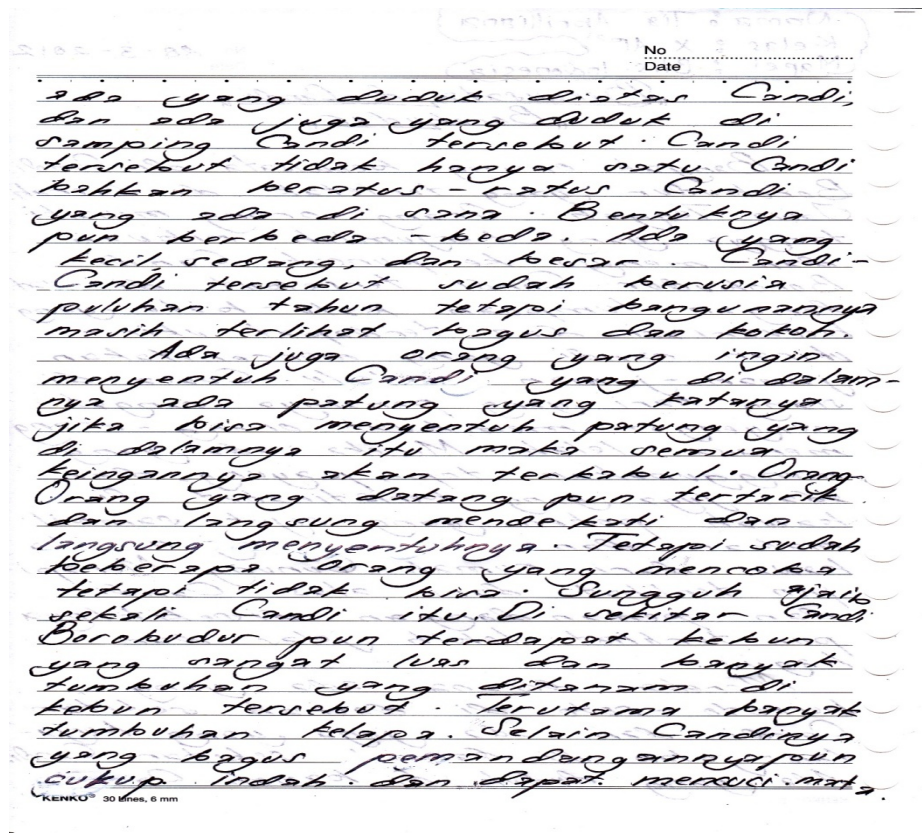 No
Date
ada yang duduk diatas Candi,
dan ada juga yang duduk di
samping Candi tersebut. Candi
tersebut tidak hanya satu Candi
bahkan beratus-ratus Candi
yang ada di sana. Bentuknya
pun berbeda-beda. Ada yang
kecil, sedang, dan besar. Candi-
Candi tersebut sudah berusia
puluhan tahun tetapi bangunannya
masih terlihat bagus dan kokoh.
Ada juga orang yang ingin
menyentuh Candi yang di dalam-
nya ada patung yang katanya
jika bisa menyentuh patung yang
di dalamnya itu maka semua
keingannya akan terkabul. Orang-
Orang yang datang pun tertarik
dan langsung mendekati dan
langsung menyentuhnya. Tetapi sudah
beberapa Orang yang mencoba
tetapi tidak bisa. Sungguh ajaib
sekali Candi itu. Di sekitar Candi
Borobudur pun terdapat kebun
yang sangat luas dan banyak
tumbuhan yang ditanam di
kebun tersebut. Terutama banyak
tumbuhan kelapa. Selain Candinya
yang bagus pemandangannya pun
cukup indah dan dapat mencuci mata.
KENKO® 30 Lines, 6 mm